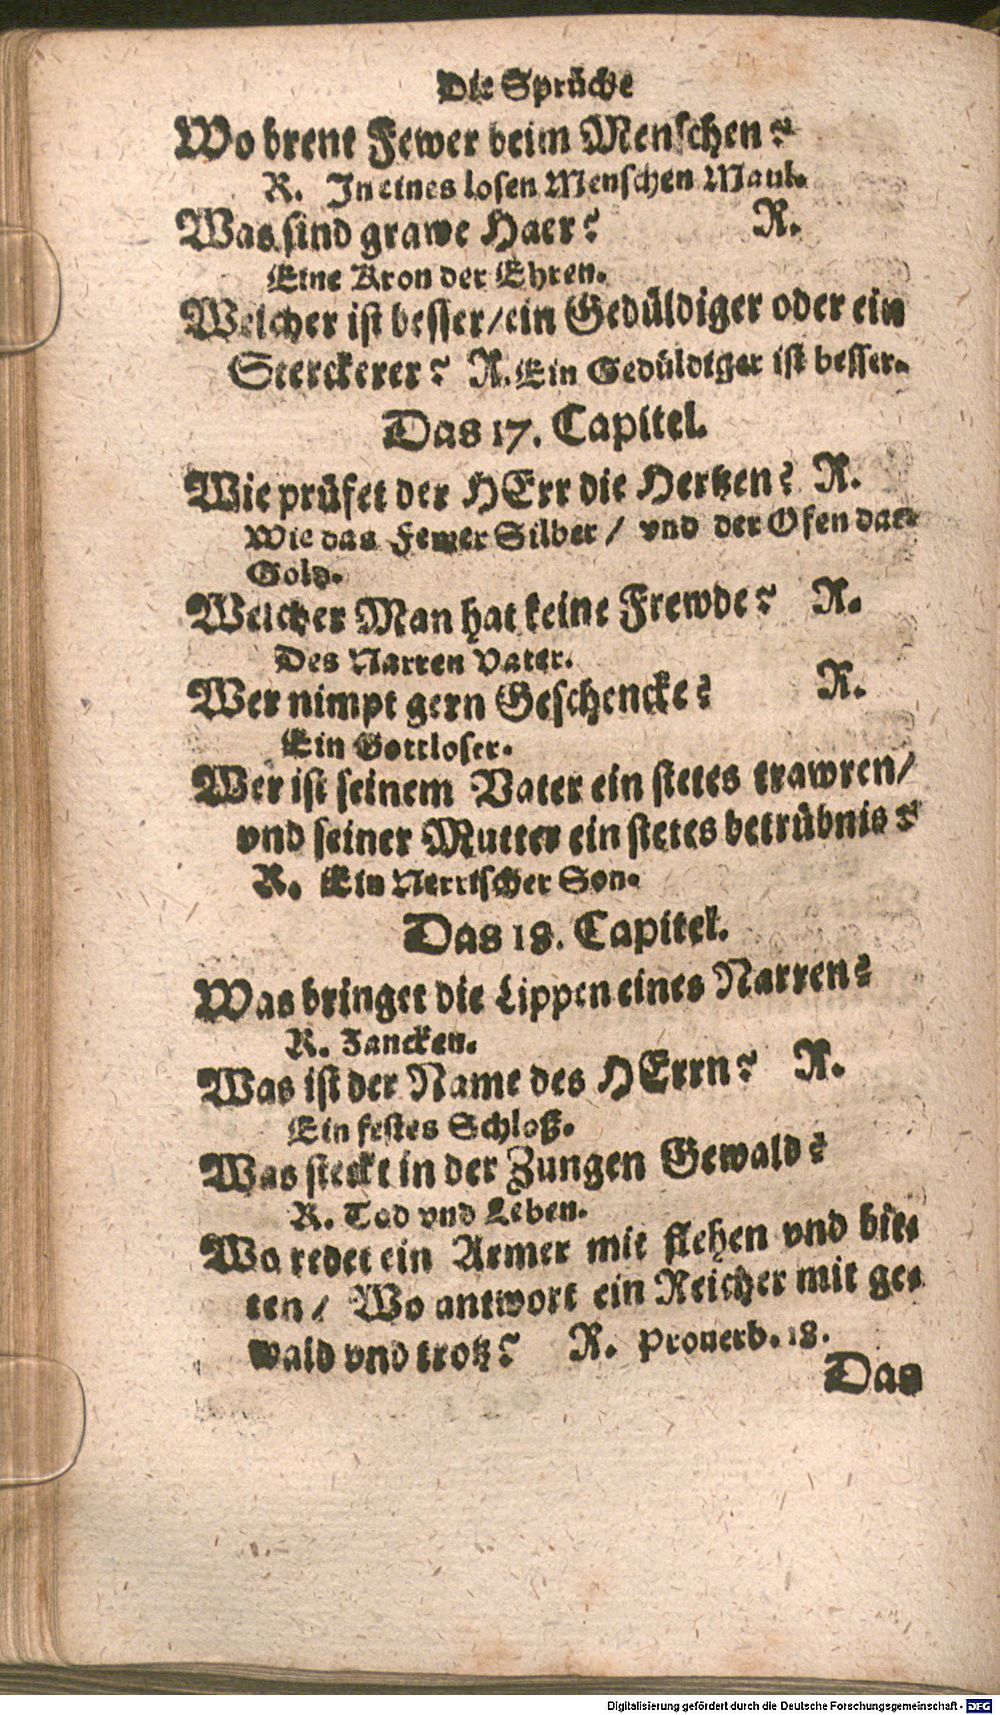 Die Sprüche
Wo brent Fewer beim Menschen?
R. In eines losen Menschen Maul.
Was sind grawe Haer? R.
Eine Kron der Ehren.
Welcher ist besser/ein Gedüldiger oder ein
Sterckerer? R. Ein Gedüldiger ist besser.
Das 17. Capitel.
Wie prüfet der HErr die Hertzen? R.
Wie das Fewer Silber / vnd der Ofen das
Gold.
Welcher Man hat keine Frewde? R.
Des Narren Vater.
Wer nimpt gern Geschencke? R.
Ein Gottloser.
Wer ist seinem Vater ein stetes trawren/
vnd seiner Mutter ein stetes betrübnis?
R. Ein Nerrischer Son.
Das 18. Capitel.
Was bringet die Lippen eines Narren?
R. Zancken.
Was ist der Name des HErrn? R.
Ein festes Schloß.
Was steckt in der Zungen Gewald?
R. Tod vnd Leben.
Wo redet ein Armer mit flehen vnd bit-
ten / Wo antwort ein Reicher mit ge-
wald vnd trotz? R. Prouerb. 18.
Das
Digitalisierung gefördert durch die Deutsche Forschungsgemeinschaft - DFG